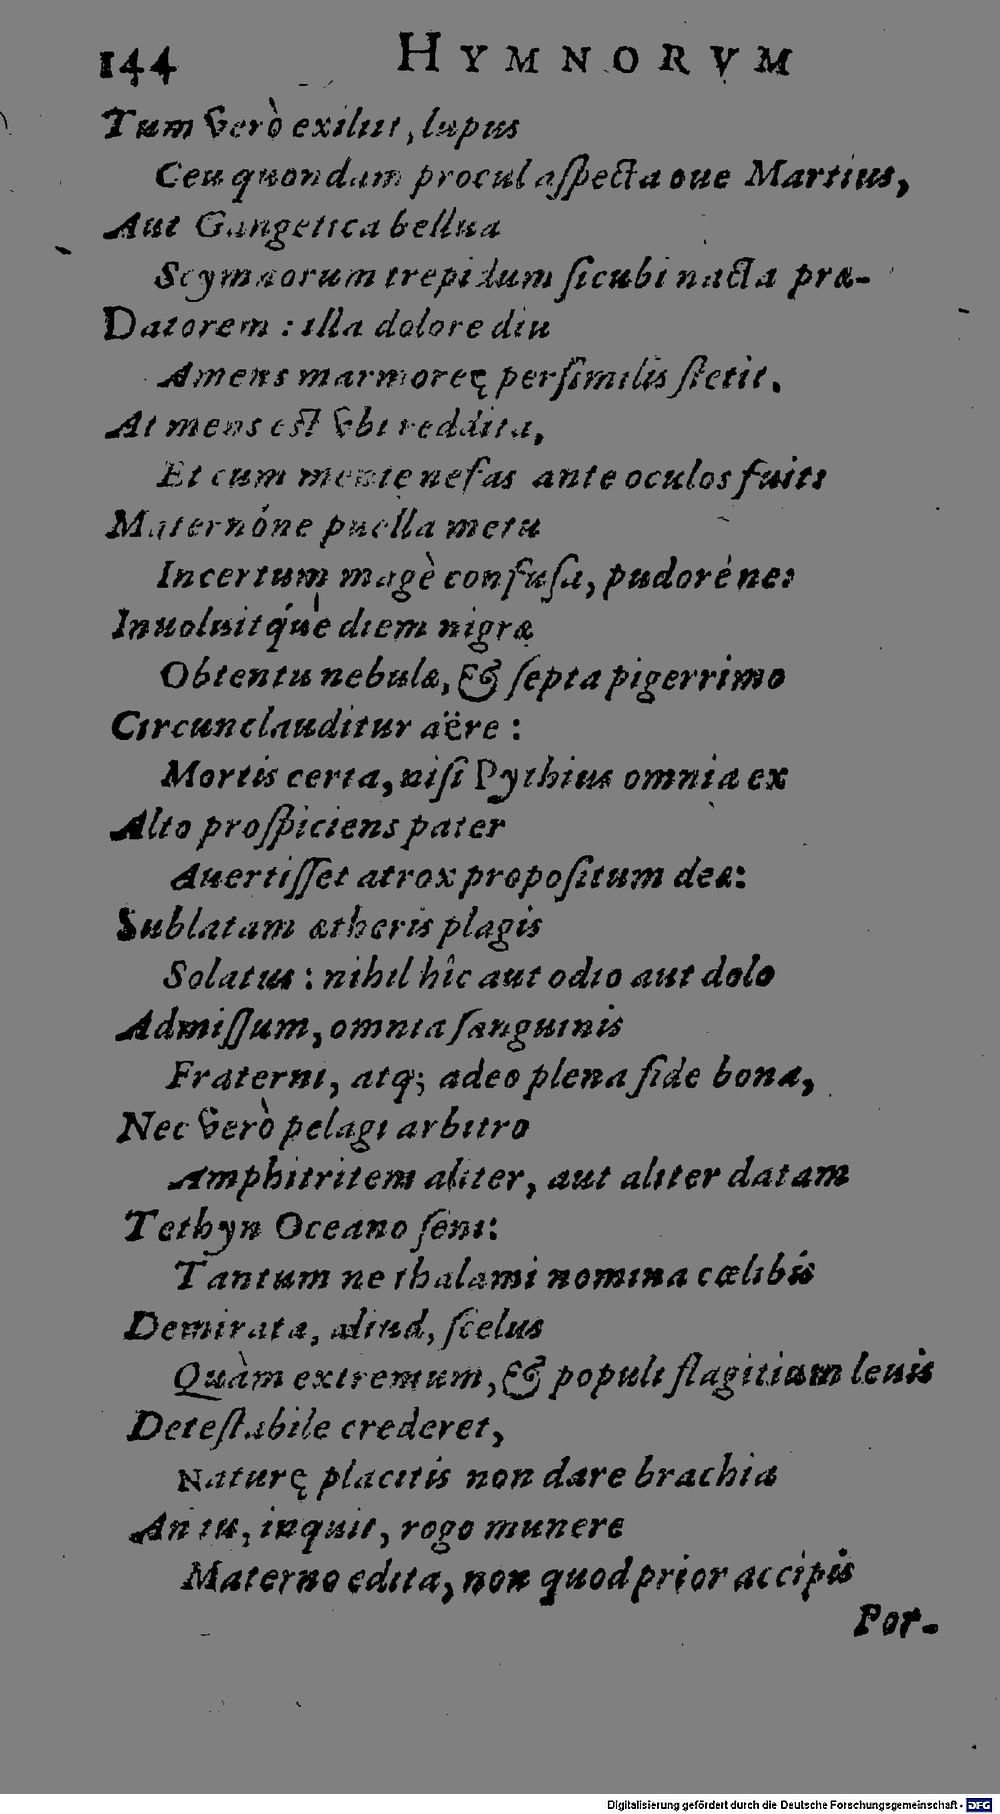 144 HYMNORVM
Tum verò exiluit, lupus
Ceu quondam procul aſpecta oue Martius,
Aut Gangetica bellua
Scymnorum trepidum ſicubi nacta præ-
Datorem: illa dolore diu
Amens marmoreę perſimilis ſtetit.
At mens eſt vbi reddita,
Et cum mente nefas ante oculos fuit:
Maternóne puella metu
Incertum magè confuſa, pudoréne:
Inuoluitq́ue diem nigræ
Obtentu nebulæ, & ſepta pigerrimo
Circunclauditur aëre:
Mortis certa, niſi Pythius omnia ex
Alto proſpiciens pater
Auertiſſet atrox propoſitum deæ:
Sublatam ætheris plagis
Solatus: nihil hîc aut odio aut dolo
Admiſſum, omnia ſanguinis
Fraterni, atq; adeo plena fide bona,
Nec verò pelagi arbitro
Amphitritem aliter, aut aliter datam
Tethyn Oceano ſeni:
Tantum ne thalami nomina cælibis
Demirata, aliud, ſcelus
Quàm extremum, & populi flagitium leuis
Deteſtabile crederet,
Naturę placitis non dare brachia
An tu, inquit, rogo munere
Materno edita, non quod prior accipis
Por-
Digitalisierung gefördert durch die Deutsche Forschungsgemeinschaft - DFG